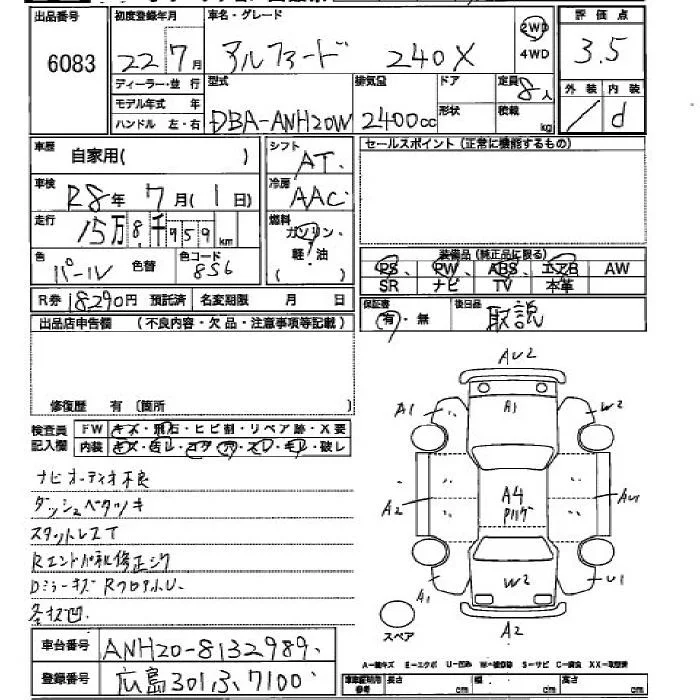 出品店No.
6083
初度登録年月
22年7月
車名・グレード
アルファード 240X
2WD
4WD
評価点
3.5
外装 内装
/ d
ディーラー・並行
モデル年式 年
ハンドル 左・右
型式
DBA-ANH20W
排気量
2400cc
ドア
形状
定員
8人
積載
kg
車歴
自家用( )
シフト
AT
セールスポイント(正常に機能するもの)
車検
R8年 7月( 1日)
冷房
AAC
走行
15万8千959km
燃料
ガソリン
軽・油
( )
色
パール
色替
色コード
856
装備品(純正品に限る)
PS PW ABS エアB AW
SR ナビ TV 本革
R券 18,290円 預託済
名変期限 月 日
保証書
有・無
後日品
取説
出品店申告欄 (不良内容・欠品・注意事項等記載)
修復歴 有(箇所 )
検査員
記入欄
FW キズ・飛石・ヒビ割・リペア跡・X要
内装 キズ・汚レ・コゲ・穴・スレ・キレ・破レ
ナビオーディオ不良
ダッシュベタツキ
スタットレスT
Dミラーキズ
各投凹
車台番号 ANH20-8132989
登録番号 広島301ふ7100
AU2
A1
A1
W2
A2
A4
AU1
A1
W2
U1
A2
スペア
A=線キズ E=エクボ U=凹み W=補修跡 S=サビ C=腐食 XX=取替済
長さ cm
幅 cm
高さ cm